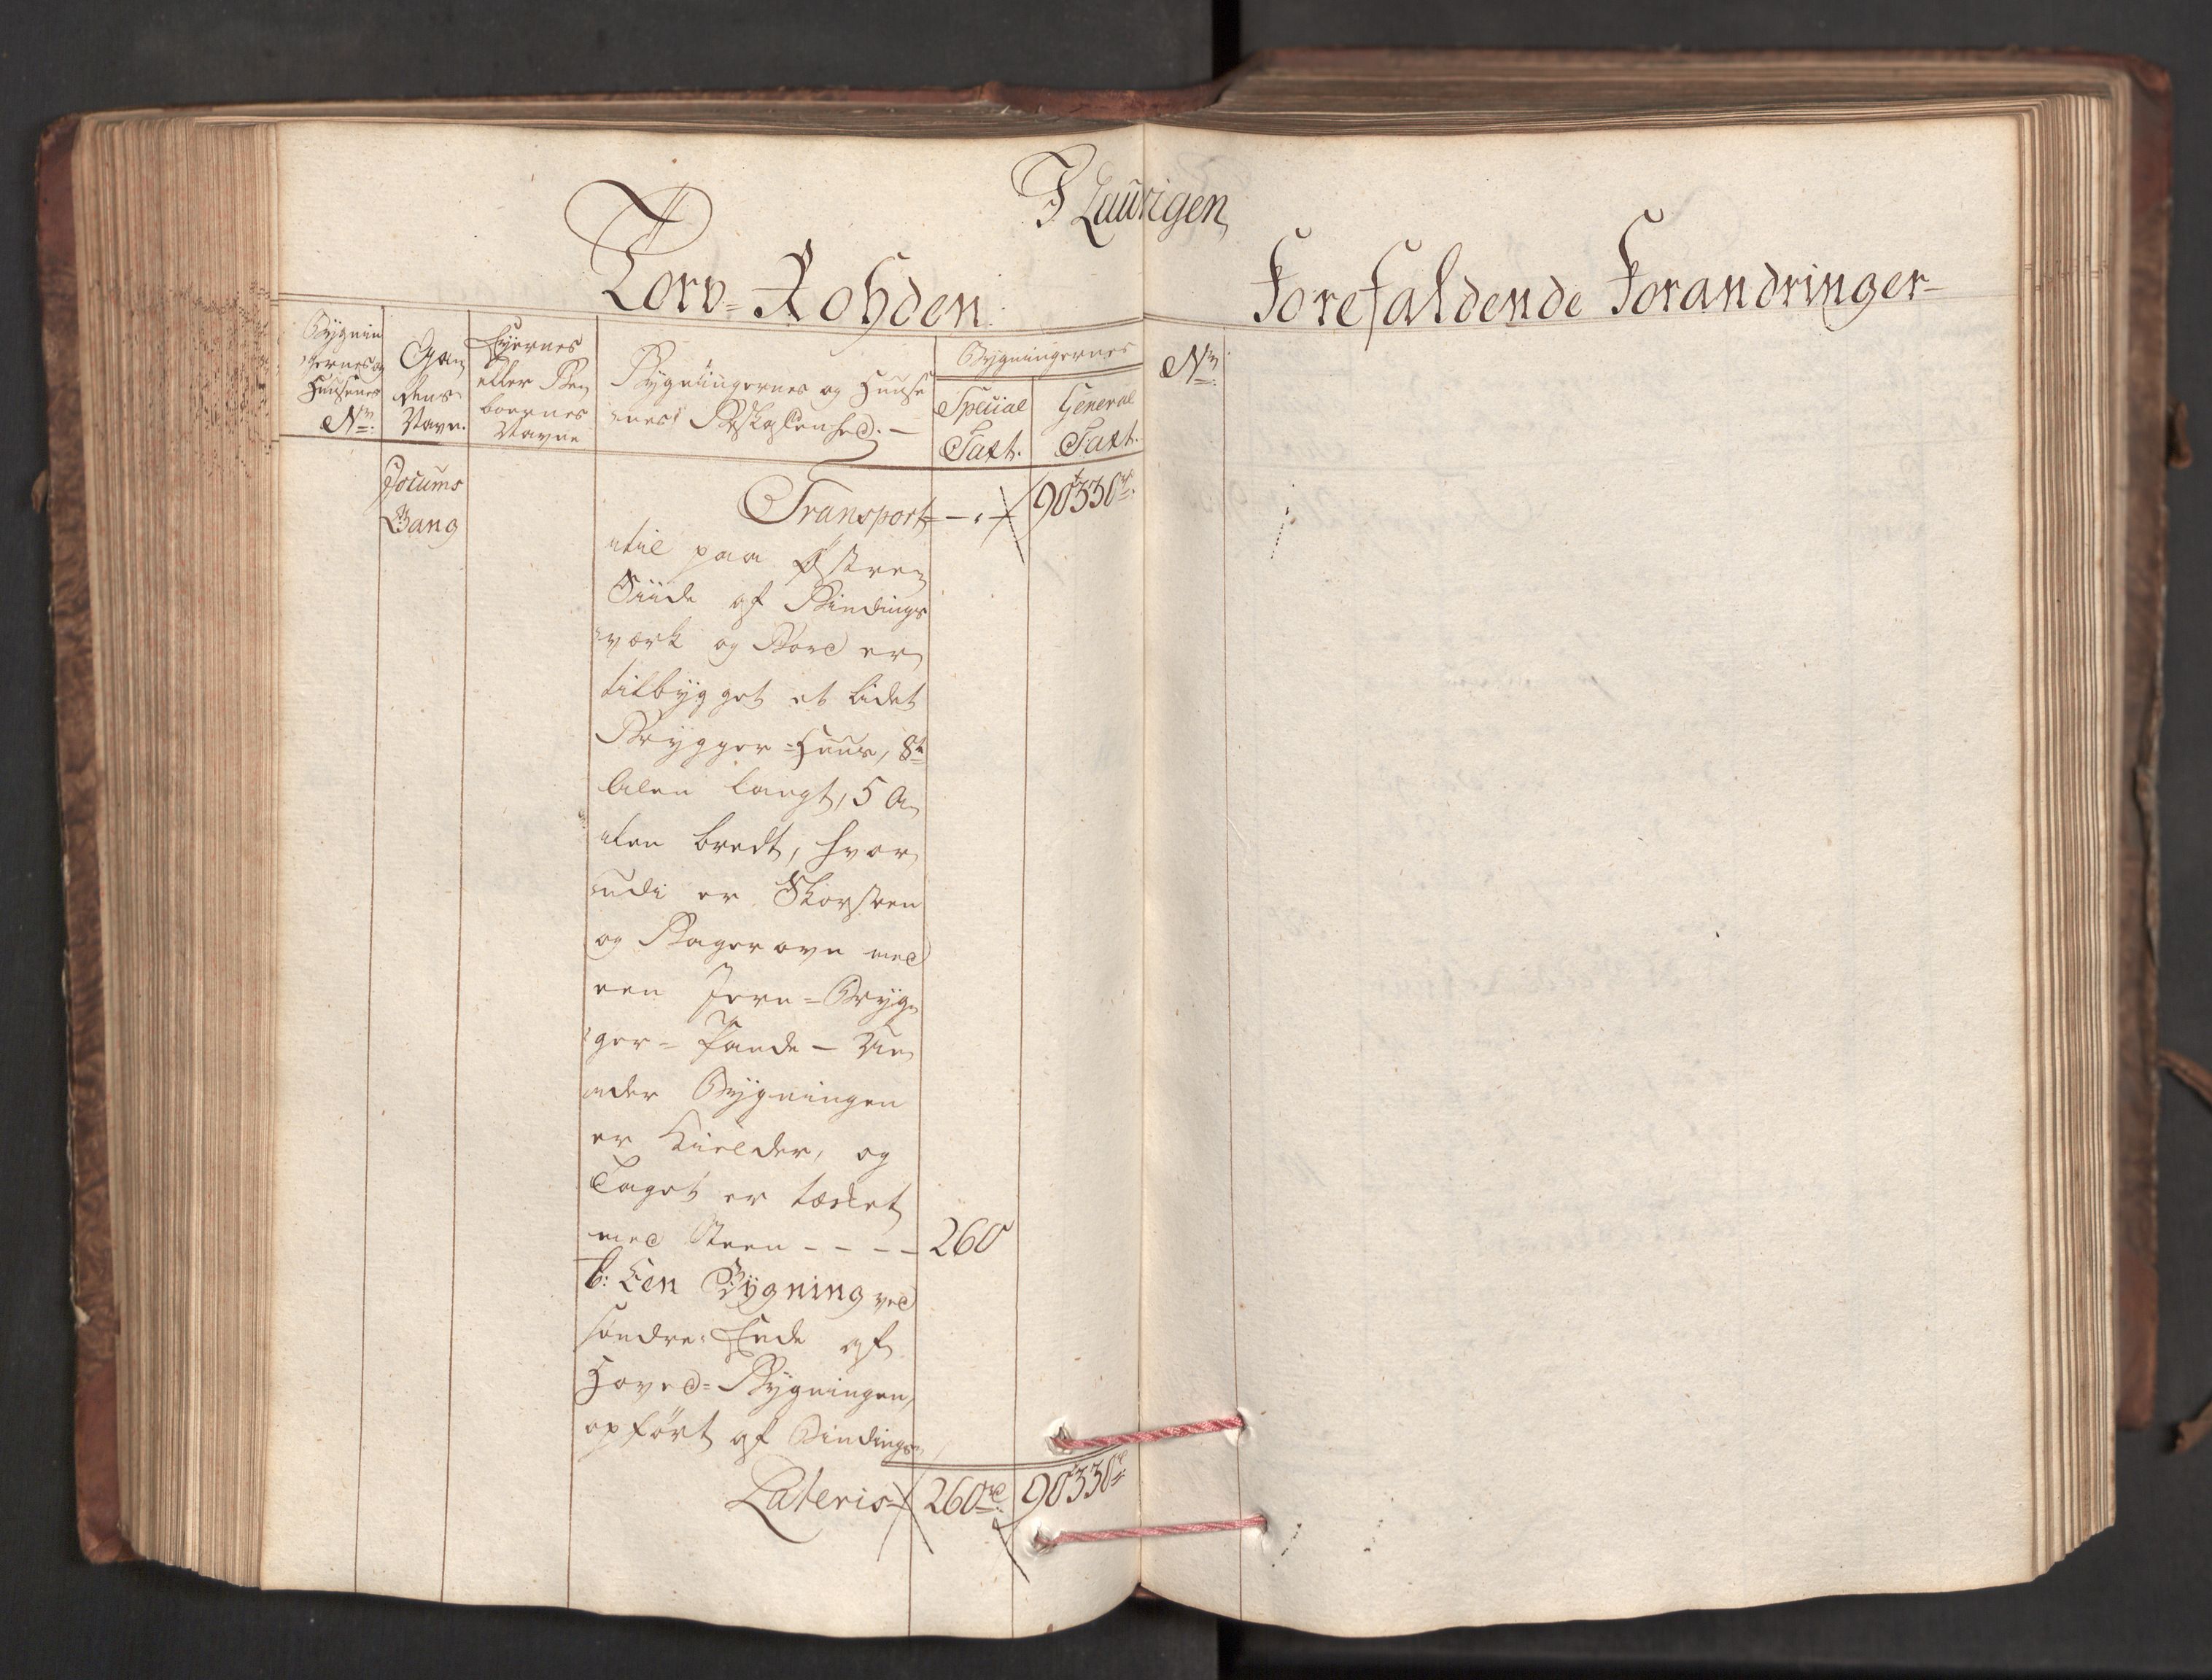 I Laurvigen,
Torv-Rohden.
Forefaldende Forandringer-
Bygnin
gernes og
Huusenes
No:
Gaar
dens
Navn.
Eyernes
eller Be
boernes
Navne
Bygningernes og Huuse
nes Beskaffenhed. —
Bygningernes
Special
Taxt.
General
Taxt.
No:
Jocums
Gang
Transport — 90330rd.
til paa Østre
Siide af Bindings
værk og Bord er
tilbygget et lidet
Brygger-Huus, 8te
Alen langt, 5 A
len bredt, hvor
udi er Skorsteen
og Bagerovn med
een Jern-Bryg
ger-Pande — Un
der Bygningen
er Kielder, og
Taget er tækket
med Steen - - - - 260
b: Een Bygning ved
søndre Ende af
Hoved-Bygningen,
opført af Bindings
Lateris 260rd. 90330rd.